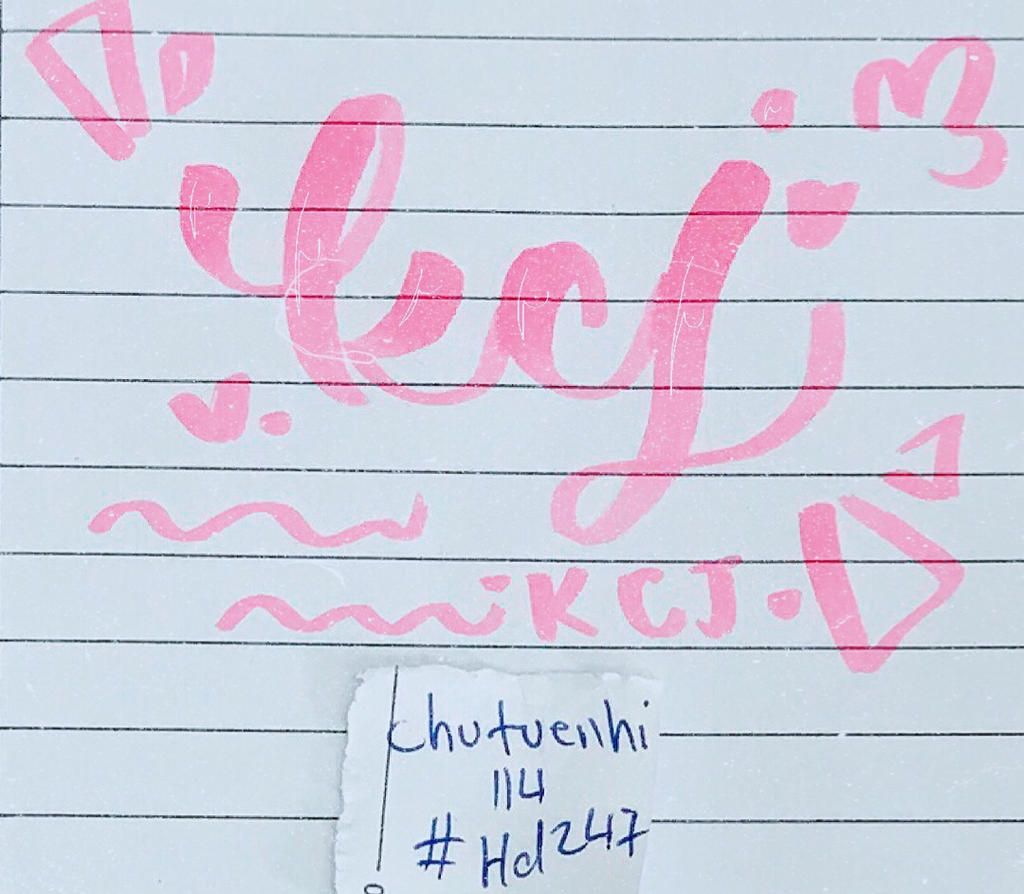 kcj
KCJ
chutuenhi
114
#Hd247